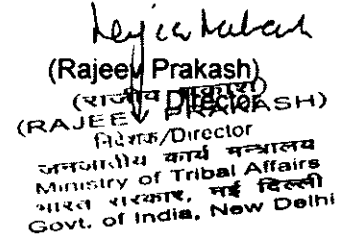 (Rajeev Prakash)
Director
(राजीव प्रकाश)
(RAJEEV PRAKASH)
निदेशक/Director
जनजातीय कार्य मन्त्रालय
Ministry of Tribal Affairs
भारत सरकार, नई दिल्ली
Govt. of India, New Delhi